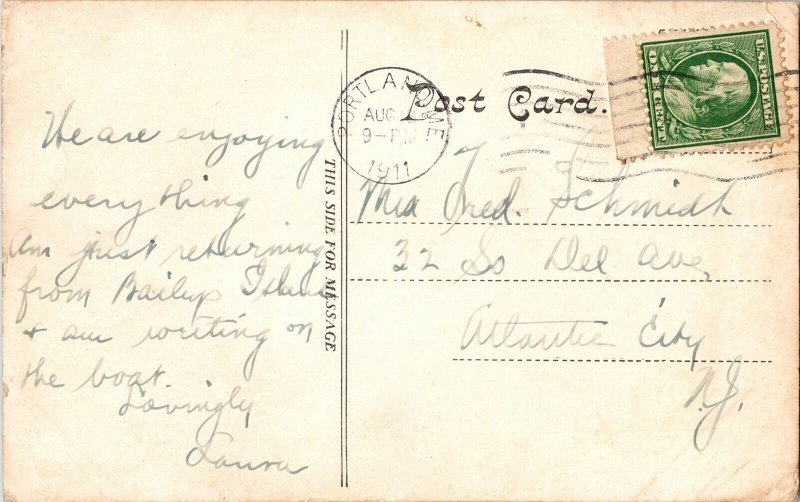 We are enjoying
everything
Am just returning
from Baileys Island
+ am writing on
the boat.
Lovingly
Laura
THIS SIDE FOR MESSAGE
PORTLAND, ME
AUG
9-PM
1911
Post Card.
U.S. POSTAGE
ONE CENT
Fred. Schmidt
32 So Del Ave,
Atlantic City
N.J.